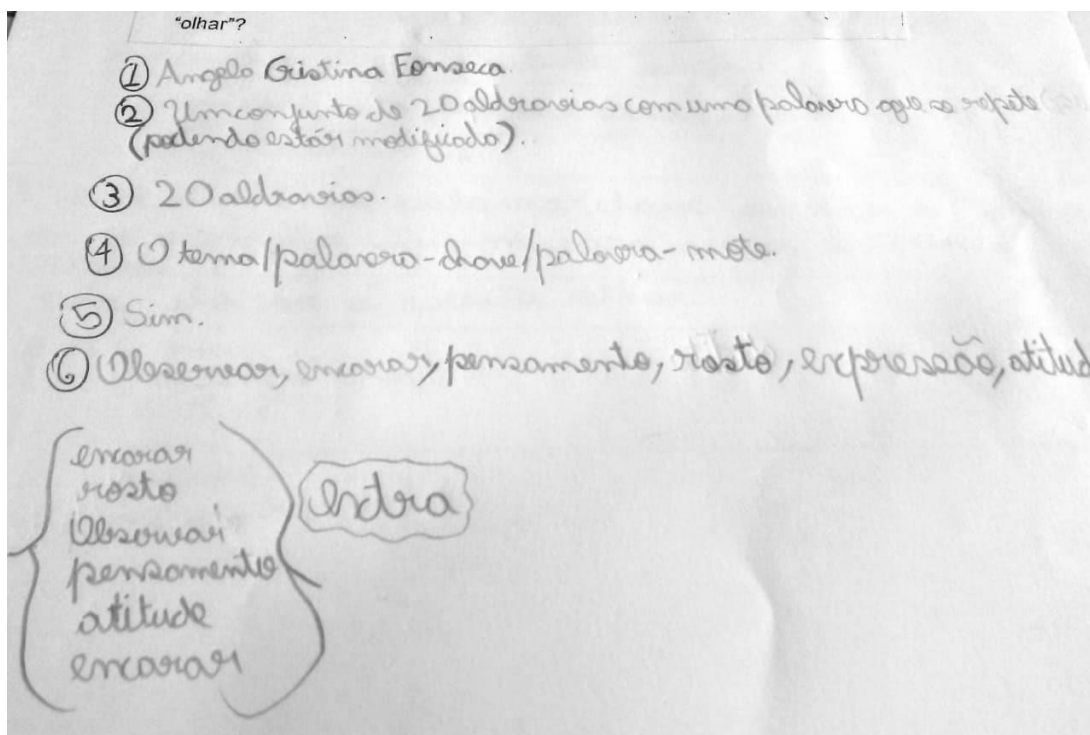 "olhar"?
① Angela Cristina Fonseca.
② Um conjunto de 20 aldravias com uma palavra que se repete
(podendo estár modificada).
③ 20 aldravias.
④ O tema/palavra-chave/palavra-mote.
⑤ Sim.
⑥ Observar, encarar, pensamento, rosto, expressão, atitud
encarar
rosto
Observar
pensamento
atitude
encarar
extra